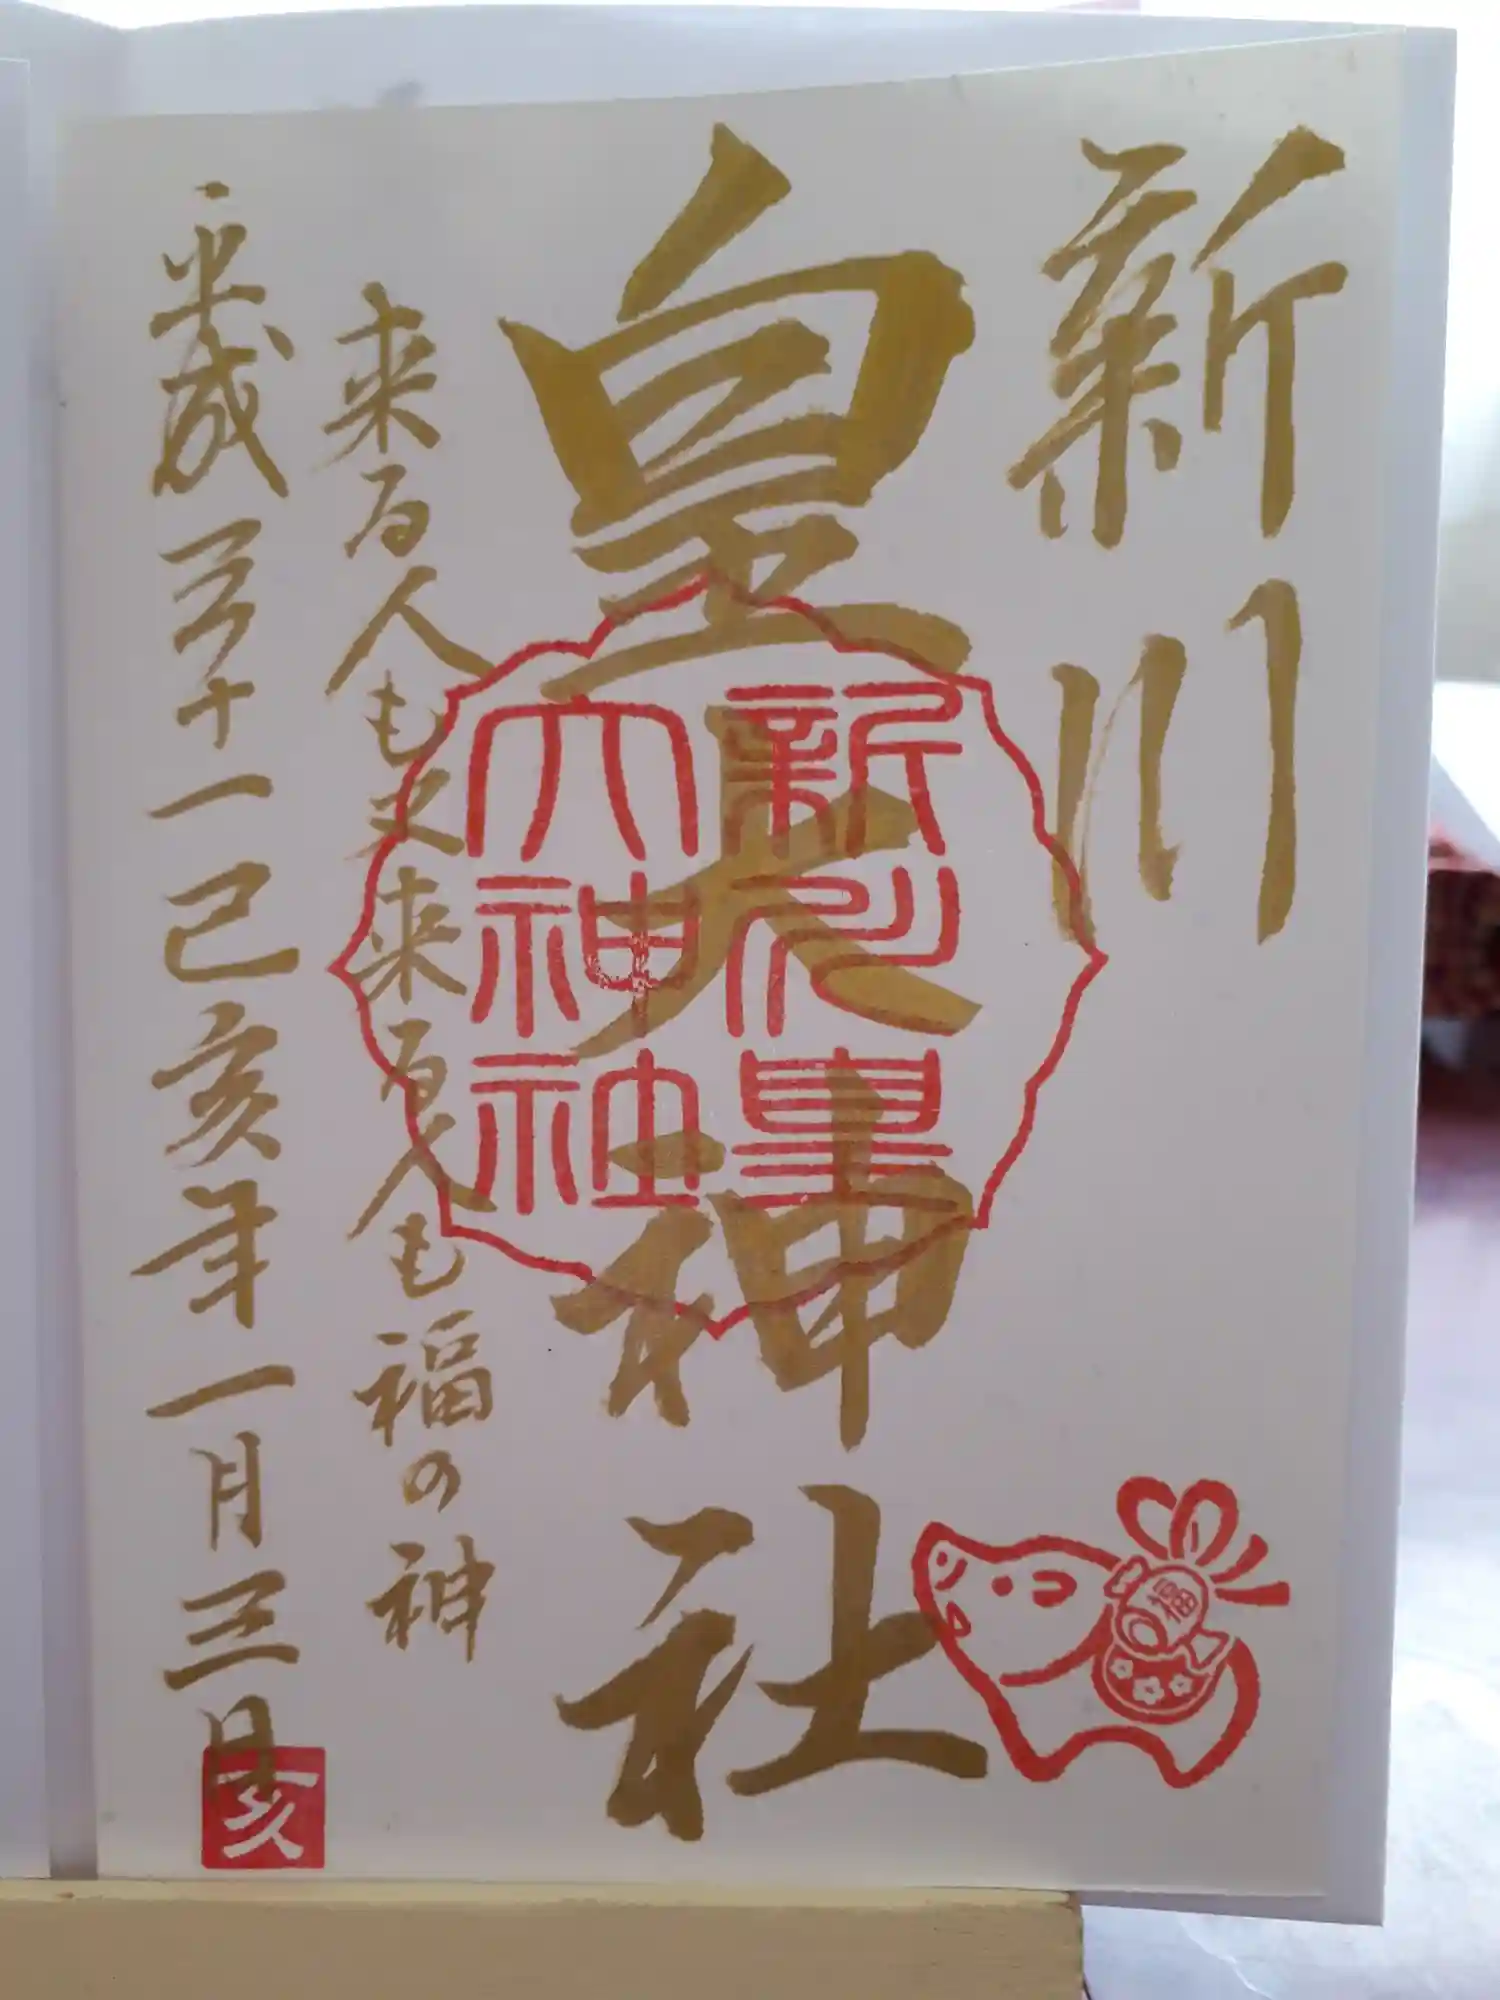 新川
皇大神社
新川皇
大神社
来る人も又来る人も福の神
平成三十一己亥年一月三日
福
亥